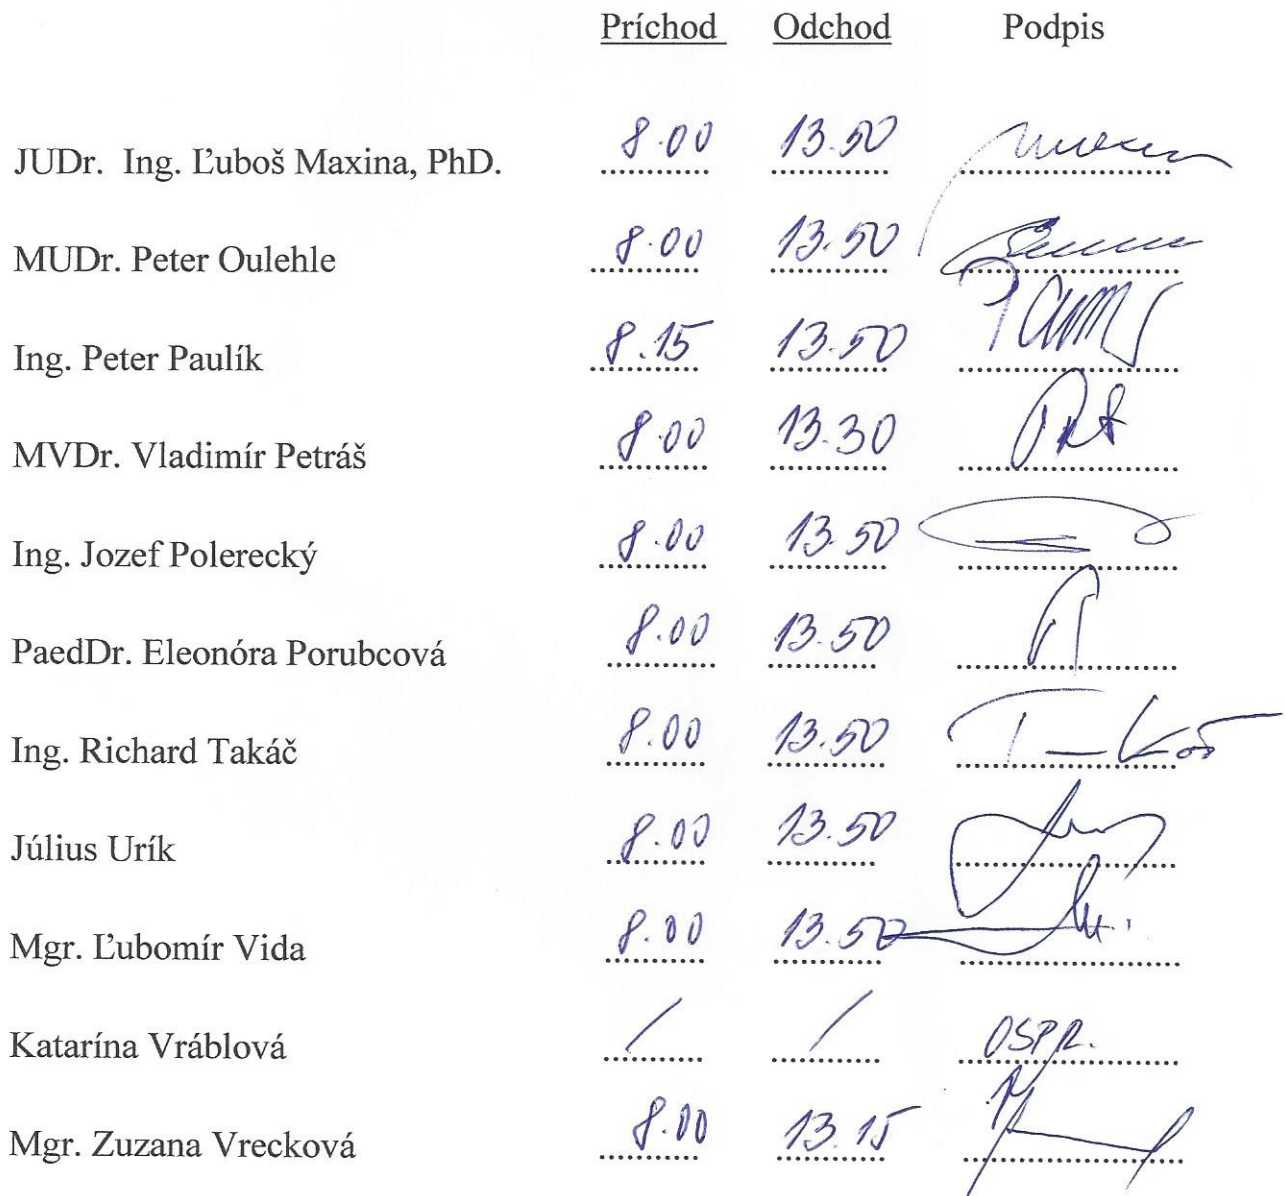 Príchod Odchod Podpis
JUDr. Ing. Ľuboš Maxina, PhD. 8.00 13.50
MUDr. Peter Oulehle 8.00 13.50
Ing. Peter Paulík 8.15 13.50
MVDr. Vladimír Petráš 8.00 13.30
Ing. Jozef Polerecký 8.00 13.50
PaedDr. Eleonóra Porubcová 8.00 13.50
Ing. Richard Takáč 8.00 13.50
Július Urík 8.00 13.50
Mgr. Ľubomír Vida 8.00 13.50
Katarína Vráblová / / OSPR.
Mgr. Zuzana Vrecková 8.00 13.15